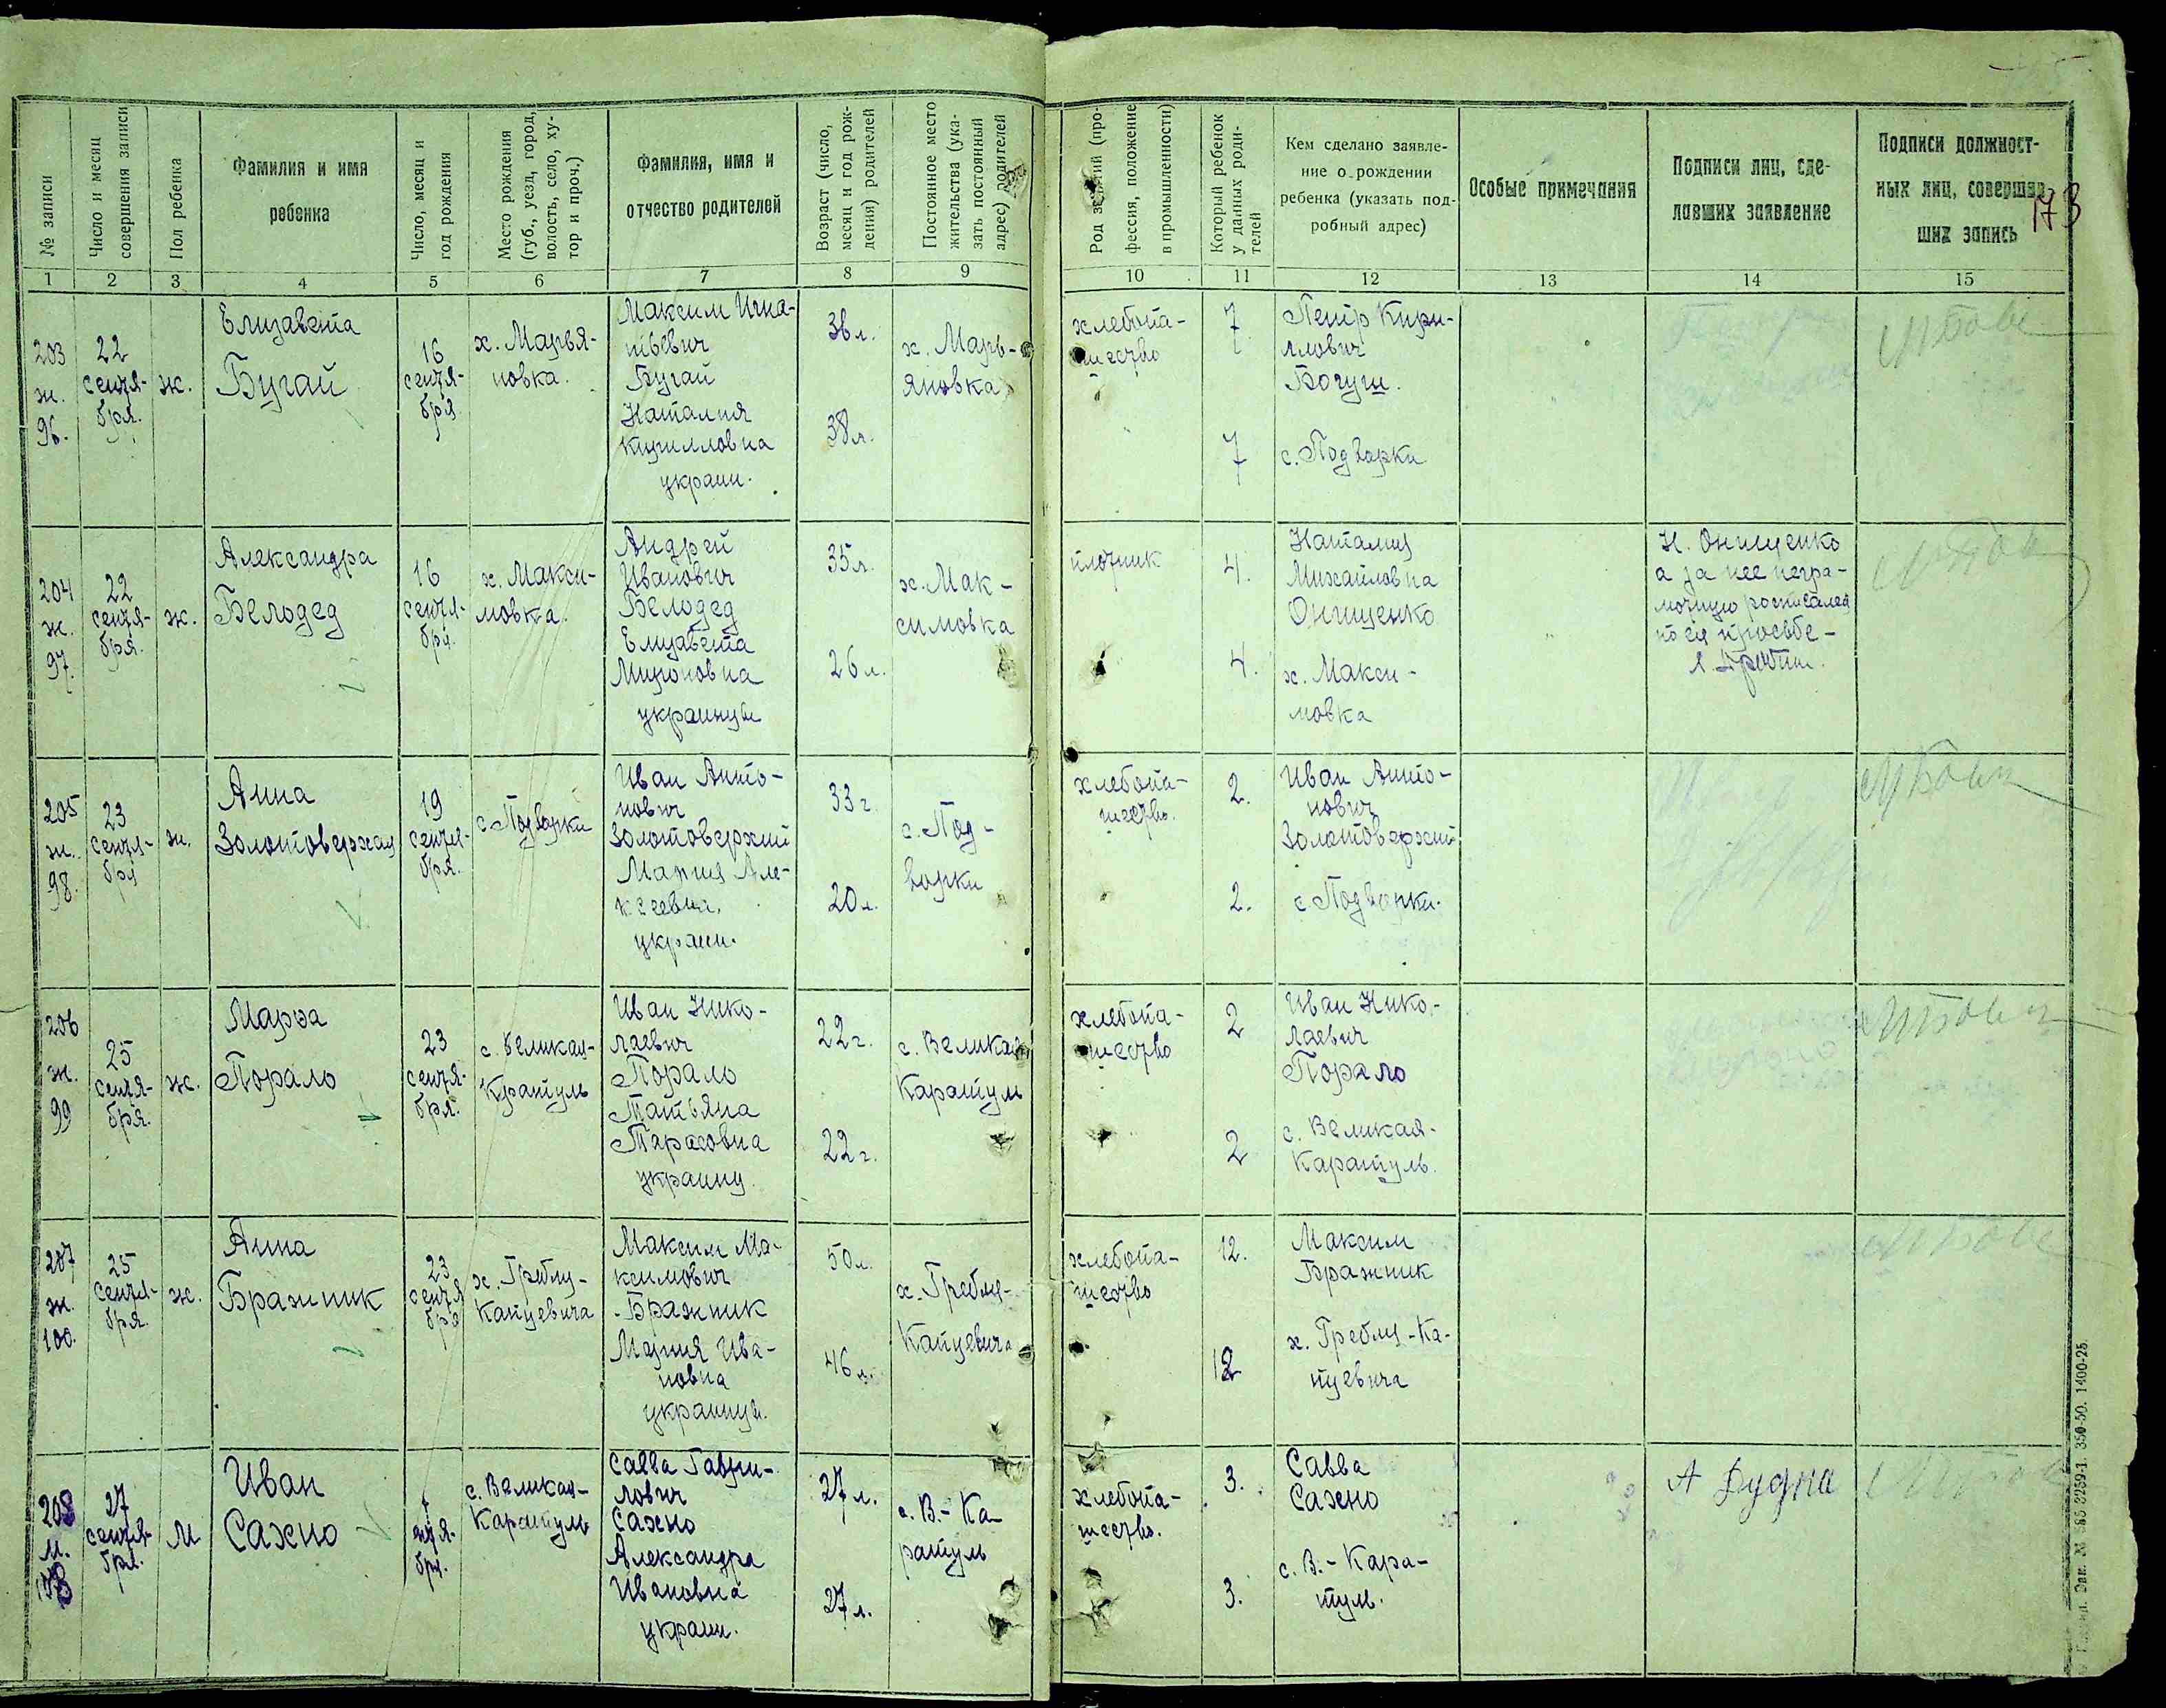 173
№ записи
Число и месяц
совершения записи
Пол ребенка
Фамилия и имя
ребенка
Число, месяц и
год рождения
Место рождения
(губ., уезд, город,
волость, село, ху-
тор и проч.)
Фамилия, имя и
отчество родителей
Возраст (число,
месяц и год рож-
дения) родителей
Постоянное место
жительства (ука-
зать постоянный
адрес) родителей
Род занятий (про-
фессия, положение
в промышленности)
Который ребенок
у данных роди-
телей
Кем сделано заявле-
ние о рождении
ребенка (указать под-
робный адрес)
Особые примечания
Подписи лиц, сде-
лавших заявление
Подписи должност-
ных лиц, совершив-
ших запись
1 2 3 4 5 6 7 8 9 10 11 12 13 14 15
203
ж.
96.
22
сентя-
бря.
ж.
Елизавета
Бугай
16
сентя-
бря
х. Марья-
новка.
Максим Игна-
тьевич
Бугай
Наталия
Кирилловна
украин.
38 л.
38 л.
х. Марь-
яновка
хлебопа-
шество
7
7
Петр Кири-
лович
Богуш.
с. Подварки
204
ж.
97.
22
сентя-
бря.
ж.
Александра
Белодед
16
сентя-
бря.
х. Макси-
мовка.
Андрей
Иванович
Белодед
Елизавета
Мироновна
украинцы
35 л.
26 л.
х. Мак-
симовка
плотник
4.
4.
Наталия
Михайловна
Онищенко
х. Макси-
мовка
Н. Онищенко
а за нее негра-
мотную росписался
по ея просьбе -
205
ж.
98.
23
сентя-
бря
ж.
Анна
Золотовержая
19
сентя-
бря.
с. Подварки
Иван Анто-
нович
Золотовержий
Мария Але-
ксеевна.
украин.
33 г.
20 л.
с. Под-
варки
хлебопа-
шество.
2.
2.
Иван Анто-
нович
Золотовержий
с. Подварки.
206
ж.
99
25
сентя-
бря.
ж.
Марѳа
Порало
23
сентя-
бря.
с. Великая-
Каратуль
Иван Нико-
лаевич
Порало
Татьяна
Тарасовна
украинц.
22 г.
22 г.
с. Великая
Каратуль
хлебопа-
шество
2
2
Иван Нико-
лаевич
Порало
с. Великая-
Каратуль.
207
ж.
100.
25
сентя-
бря.
ж.
Анна
Бражник
23
сентя
бря
х. Гребля-
Капцевича
Максим Ма-
ксимович
Бражник
Мария Ива-
новна
украинцы.
50 л.
46 л.
х. Гребля-
Капцевича
хлебопа-
шество
12.
12
Максим
Бражник
х. Гребля-Ка-
пцевича
208
м.
108
27
сентя-
бря.
м
Иван
Сахно
7
сентя-
бря.
с. Великая-
Каратуль
Савва Гаври-
лович
Сахно
Александра
Ивановна
украин.
27 л.
27 л.
с. В.-Ка-
ратуль
хлебопа-
шество.
3.
3.
Савва
Сахно
с. В.-Кара-
туль.
А Дудка